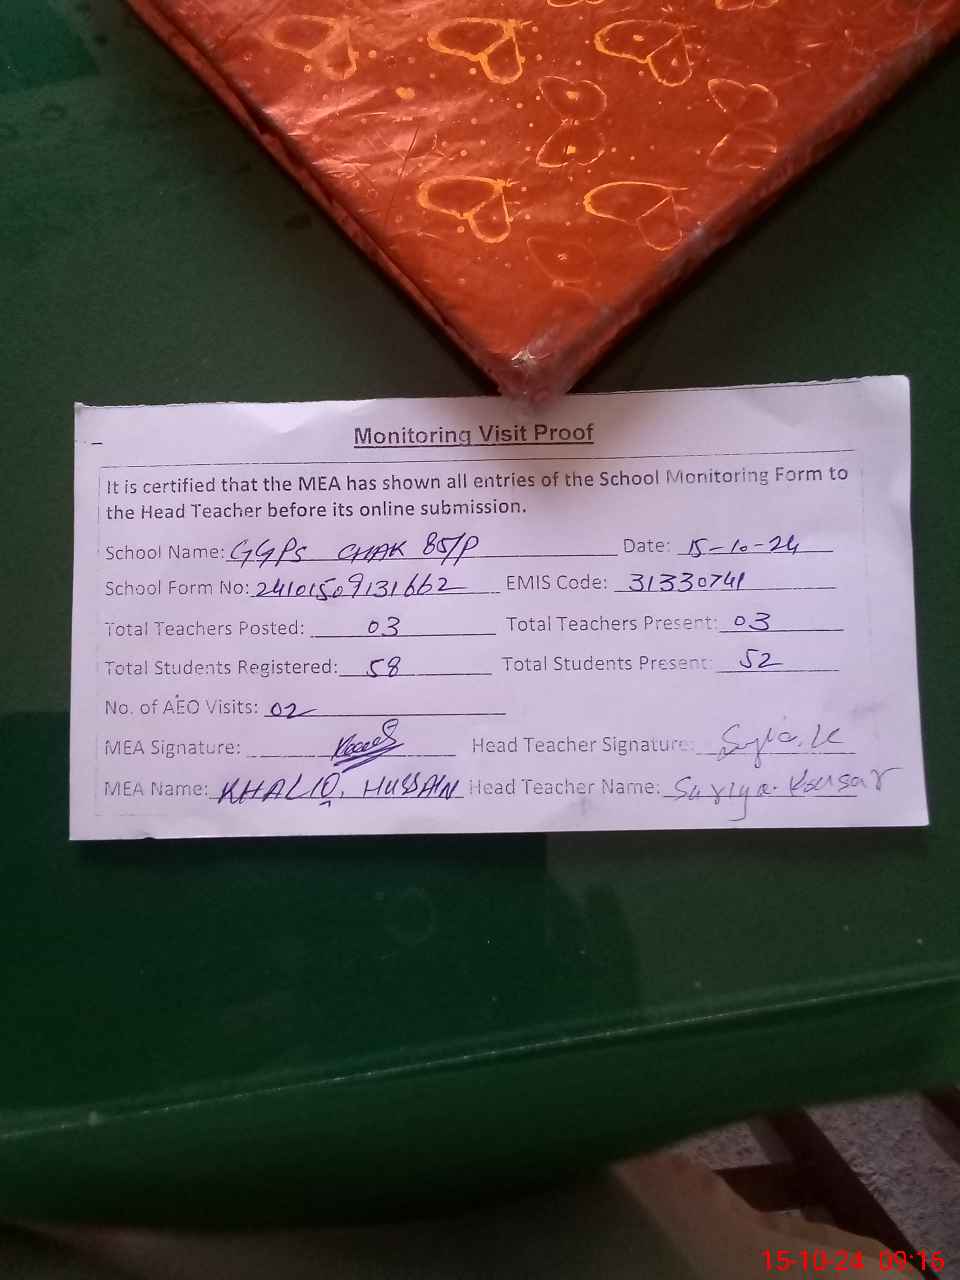 Monitoring Visit Proof
It is certified that the MEA has shown all entries of the School Monitoring Form to
the Head Teacher before its online submission.
School Name: GGPS CHAK 85/P Date: 15-10-24
School Form No: 24101509131662 EMIS Code: 31330741
Total Teachers Posted: 03 Total Teachers Present: 03
Total Students Registered: 58 Total Students Present: 52
No. of AEO Visits: 02
MEA Signature: Head Teacher Signature:
MEA Name: KHALIQ. HUSSAIN Head Teacher Name: Suriya Kousar
15-10-24 09:16